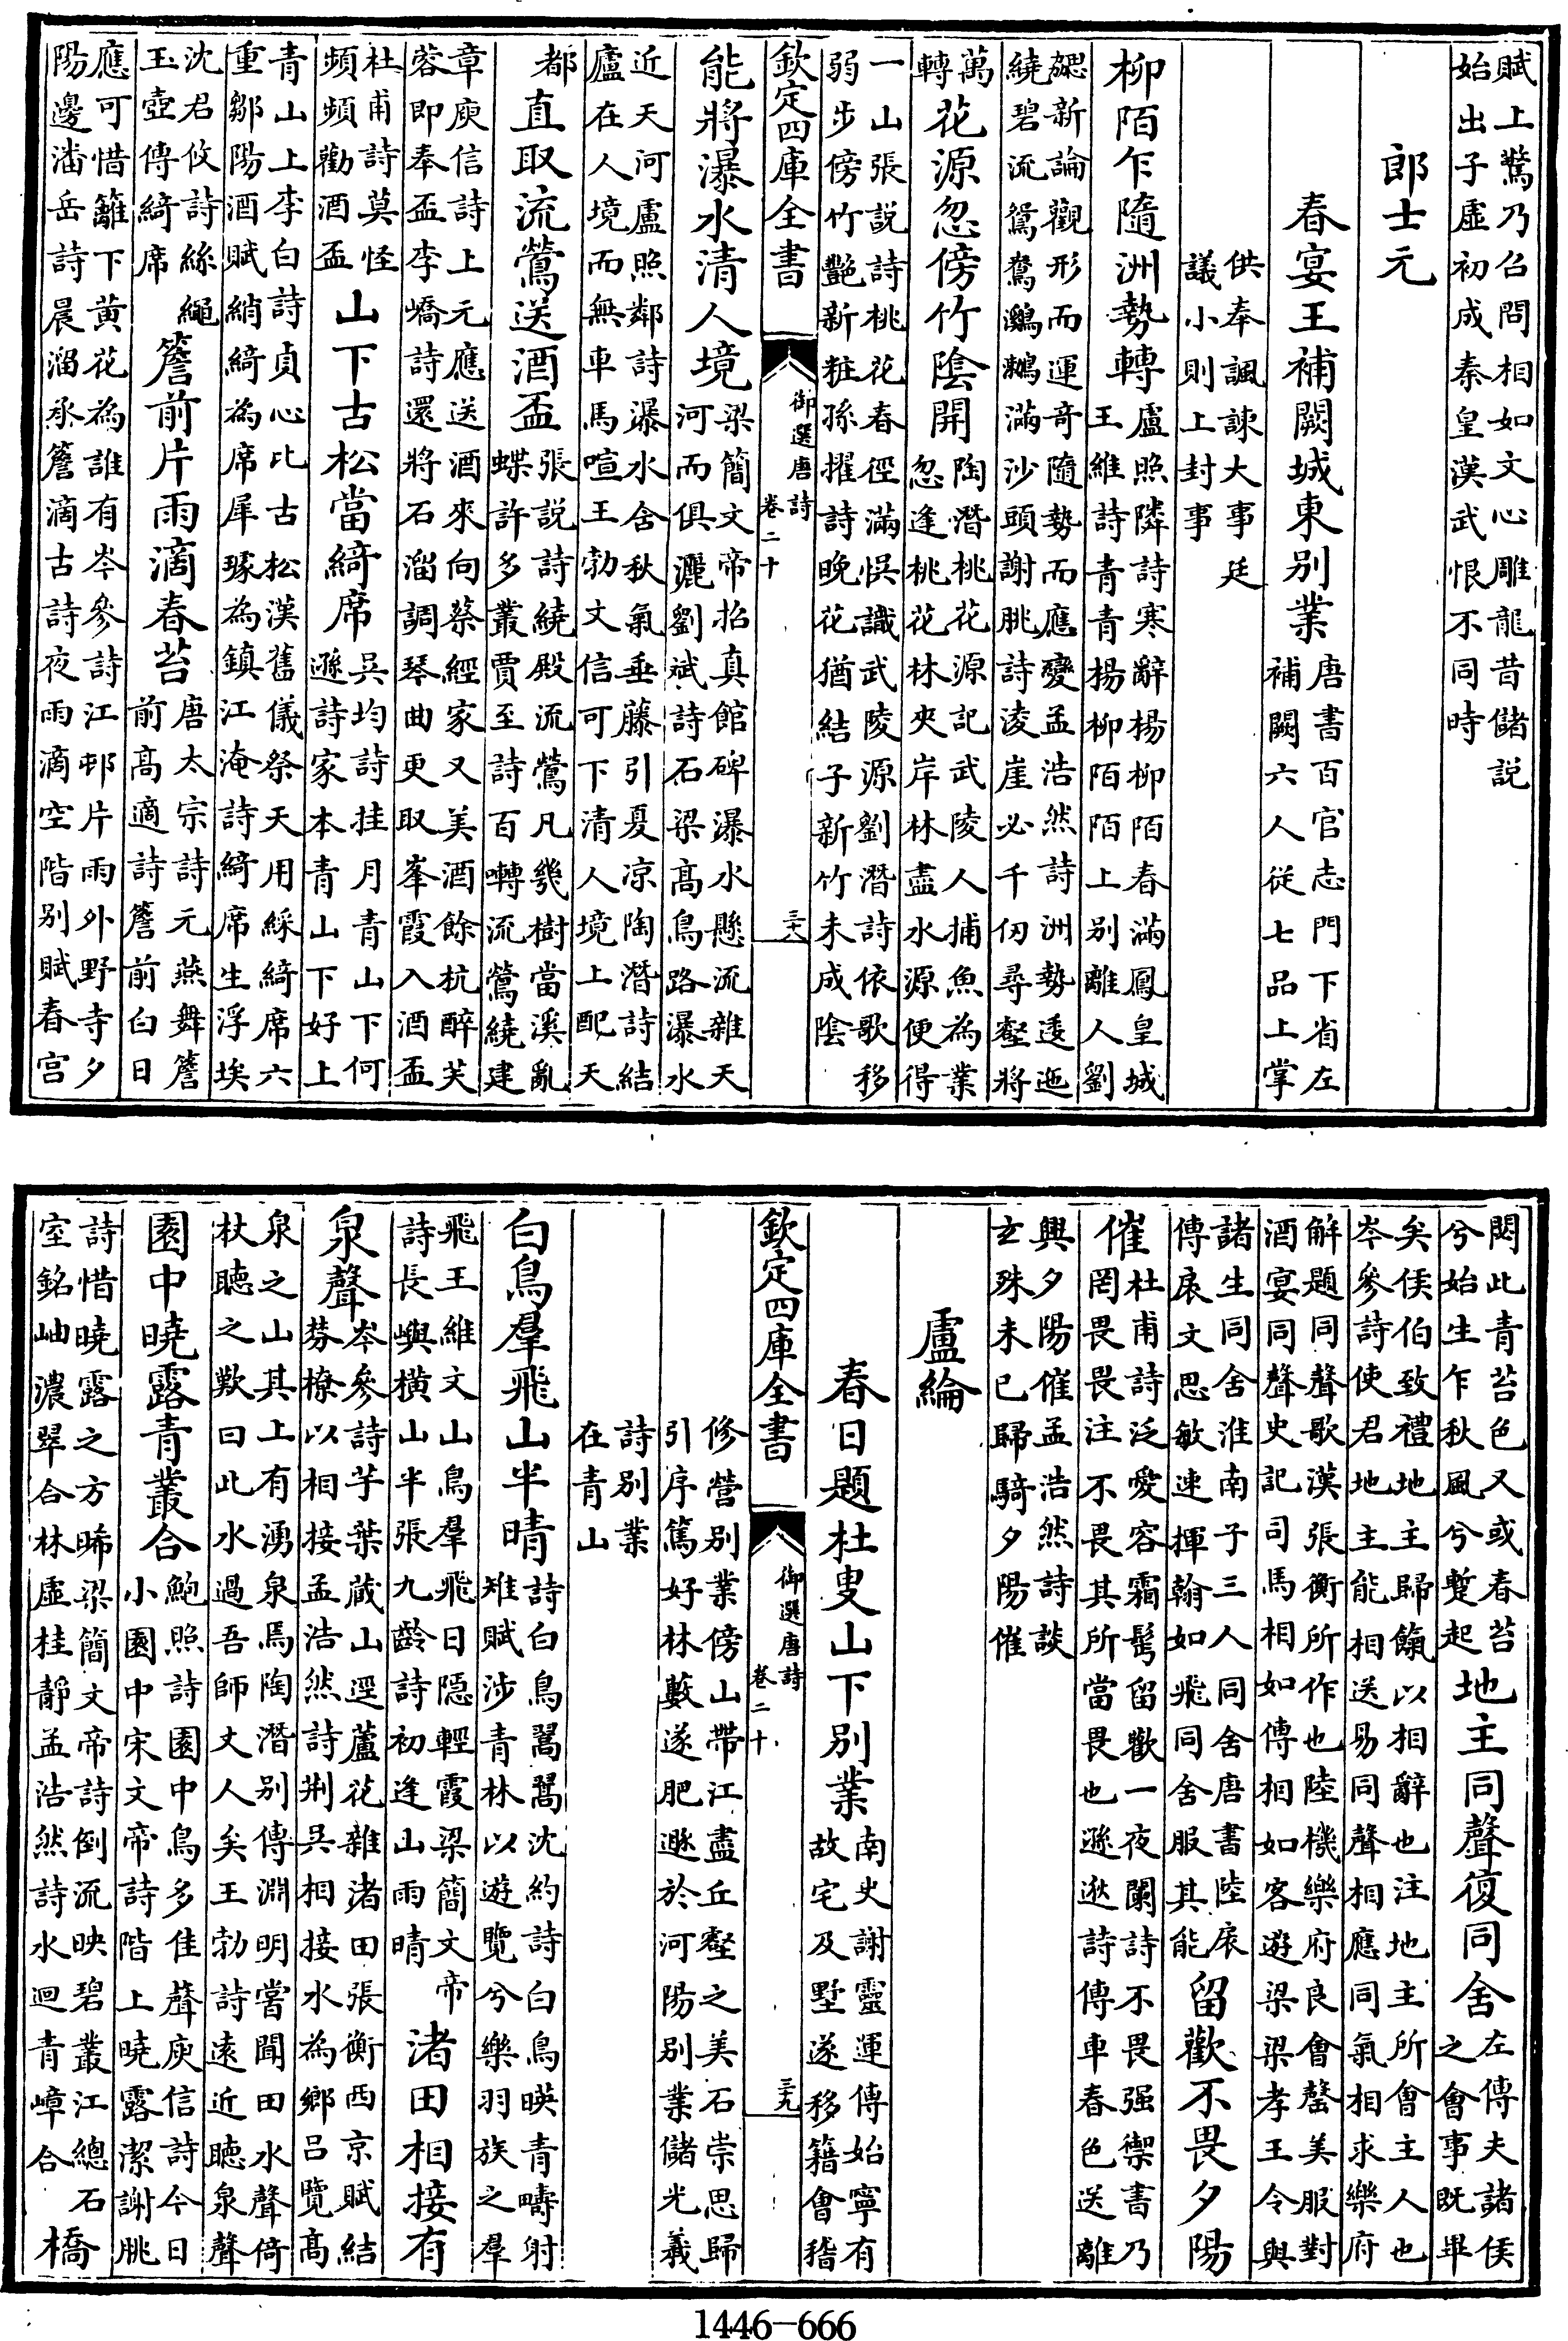 賦上驚乃召問相如文心雕龍昔儲説
始出子虛初成秦皇漢武恨不同時
郎士元
春宴王補闕城東别業 唐書百官志門下省左
補闕六人從七品上掌
供奉諷諫大事廷
議小則上封事
柳陌乍隨洲勢轉 盧照隣詩寒辭楊柳陌春滿鳳皇城
王維詩青青楊柳陌陌上别離人劉
勰新論觀形而運奇隨勢而應變孟浩然詩洲勢逶迤
繞碧流鴛鴦鸂鶒滿沙頭謝朓詩淩崖必千仭尋壑將
萬
轉 花源忽傍竹陰開 陶潛桃花源記武陵人捕魚為業
忽逢桃花林夾岸林盡水源便得
一山張説詩桃花春徑滿悞識武陵源劉潛詩依歌移
弱步傍竹艷新粧孫擢詩晚花猶結子新竹未成陰
欽定四庫全書 御選唐詩 卷二十 三十八
能將瀑水清人境 梁簡文帝招真館碑瀑水懸流雜天
河而俱灑劉斌詩石梁高鳥路瀑水
近天河盧照鄰詩瀑水舍秋氣垂藤引夏凉陶潛詩結
廬在人境而無車馬喧王勃文信可下清人境上配天
都 直取流鶯送酒盃 張説詩繞殿流鶯凡幾樹當溪亂
蝶許多叢賈至詩百囀流鶯繞建
章庾信詩上元應送酒來向蔡經家又美酒餘杭醉芙
蓉即奉盃李嶠詩還將石溜調琴曲更取峯霞入酒盃
杜甫詩莫怪
頻頻勸酒盃 山下古松當綺席 吳均詩挂月青山下何
遜詩家本青山下好上
青山上李白詩貞心比古松漢舊儀祭天用綵綺席六
重鄒陽酒賦綃綺為席犀璩為鎮江淹詩綺席生浮埃
沈君攸詩絲繩
玉壺傳綺席 簷前片雨滴春苔 唐太宗詩元燕舞簷
前高適詩簷前白日
應可惜籬下黄花為誰有岑參詩江邨片雨外野寺夕
陽邊潘岳詩晨溜承簷滴古詩夜雨滴空階别賦春宫
閟此青苔色又或春苔
兮始生乍秋風兮蹔起 地主同聲復同舍 左傳夫諸侯
之會事既畢
矣侯伯致禮地主歸餼以相辭也注地主所會主人也
岑參詩使君地主能相送易同聲相應同氣相求樂府
解題同聲歌漢張衡所作也陸機樂府良會罄美服對
酒宴同聲史記司馬相如傳相如客遊梁梁孝王令與
諸生同舍淮南子三人同舍唐書陸扆
傳扆文思敏速揮翰如飛同舍服其能 留歡不畏夕陽
催 杜甫詩泛愛容霜髩留歡一夜闌詩不畏强禦書乃
罔畏畏注不畏其所當畏也遜逖詩傳車春色送離
興夕陽催孟浩然詩談
玄殊未已歸騎夕陽催
盧綸
春日題杜叟山下别業 南史謝靈運傳始寧有
故宅及墅遂移籍會稽
修營别業傍山帶江盡丘壑之美石崇思歸
引序篤好林藪遂肥遯於河陽别業儲光羲
詩别業
在青山
欽定四庫全書 御選唐詩 卷二十 三十九
白鳥羣飛山半晴 詩白鳥翯翯沈約詩白鳥暎青疇射
雉賦涉青林以遊覽兮樂羽族之羣
飛王維文山鳥羣飛日隠輕霞梁簡文帝
詩長嶼横山半張九齡詩初逢山雨晴 渚田相接有
泉聲 岑參詩芋葉蔵山逕蘆花雜渚田張衡西京賦結
棼橑以相接孟浩然詩荆吳相接水為鄉吕覽高
泉之山其上有湧泉焉陶潛别傳淵明嘗聞田水聲倚
杖聽之歎曰此水過吾師丈人矣王勃詩遠近聽泉聲
園中曉露青叢合 鮑照詩園中鳥多佳聲庾信詩今日
小園中宋文帝詩階上曉露潔謝朓
詩惜曉露之方晞梁簡文帝詩倒流映碧叢江總石
室銘岫濃翠合林虛桂靜孟浩然詩水迴青嶂合 橋
1446-666